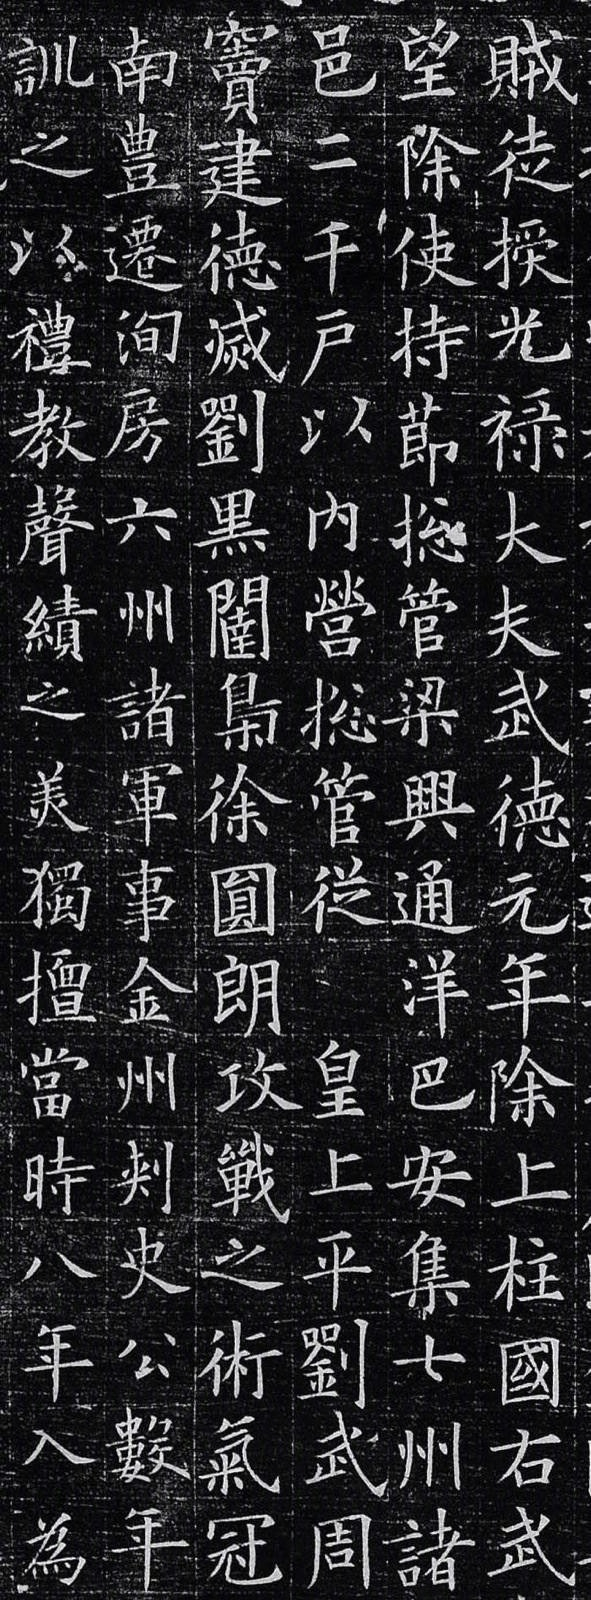 賊徒授光禄大夫武德元年除上柱國右武
望除使持節捴管梁興通洋巴安集七州諸
邑二千戶以内營捴管從 皇上平劉武周
竇建德滅劉黑闥梟徐圓朗攻戰之術氣冠
南豊遷洵房六州諸軍事金州刺史公數年
訓之以禮教聲績之美獨擅當時八年入為